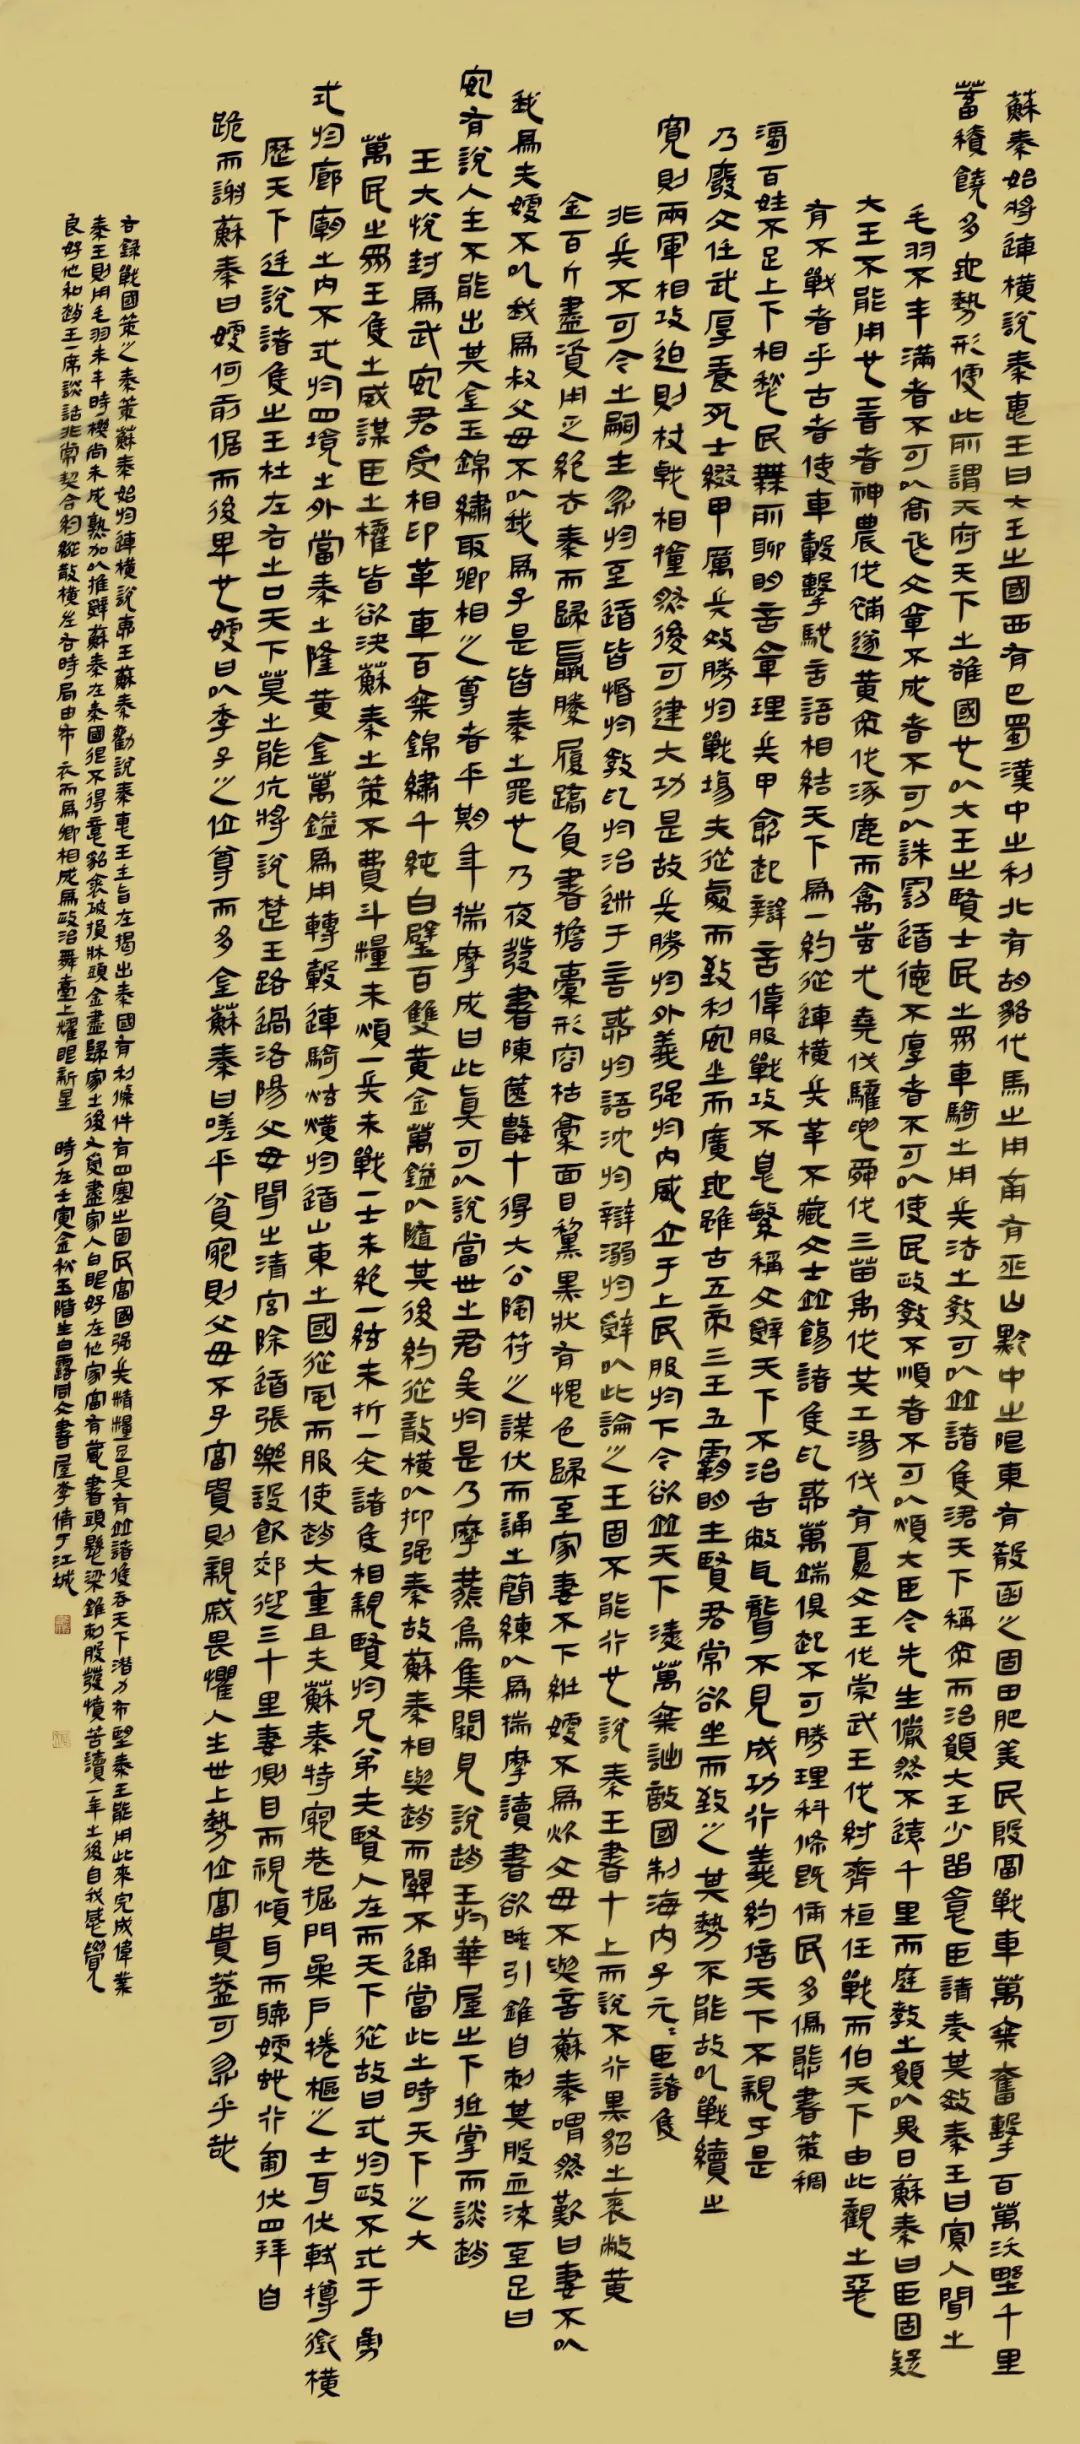 蘇秦始將連橫說秦惠王曰大王之國西有巴蜀漢中之利北有胡貉代馬之用南有巫山黔中之限東有殽函之固田肥美民殷富戰車萬乘奮擊百萬沃野千里
蓄積饒多地勢形便此所謂天府天下之雄國也以大王之賢士民之眾車騎之用兵法之教可以並諸侯吞天下稱帝而治願大王少留意臣請奏其效秦王曰寡人聞之
毛羽不丰滿者不可以高飛文章不成者不可以誅罰道德不厚者不可以使民政教不順者不可以煩大臣今先生儼然不遠千里而庭教之願以異日蘇秦曰臣固疑
大王不能用也昔者神農伐補遂黃帝伐涿鹿而禽蚩尤堯伐驩兜舜伐三苗禹伐共工湯伐有夏文王伐崇武王伐紂齊桓任戰而伯天下由此觀之惡
有不戰者乎古者使車轂擊馳言語相結天下為一約從連橫兵革不藏文士並餝諸侯亂惑萬端俱起不可勝理科條既備民多偽態書策稠
濁百姓不足上下相愁民無所聊明言章理兵甲愈起辯言偉服戰攻不息繁稱文辭天下不治舌敝耳聾不見成功行義約信天下不親于是
乃廢文任武厚養死士綴甲厲兵效勝於戰場夫從處而致利安坐而廣地雖古五帝三王五霸明主賢君常欲坐而致之其勢不能故以戰續之
寬則兩軍相攻迫則杖戟相撞然後可建大功是故兵勝於外義强於內威立于上民服於下今欲並天下淩萬乘詘敵國制海內子元元臣諸侯
非兵不可今之嗣主忽於至道皆惛於教亂於治迷于言惑於語沈於辯溺於辭以此論之王固不能行也說秦王書十上而說不行黑貂之裘敝黃
金百斤盡資用乏絕去秦而歸羸縢履蹻負書擔橐形容枯槁面目黧黑狀有愧色歸至家妻不下紝嫂不為炊父母不與言蘇秦喟然歎曰妻不以
我為夫嫂不以我為叔父母不以我為子是皆秦之罪也乃夜發書陳篋數十得太公陰符之謀伏而誦之簡練以為揣摩讀書欲睡引錐自刺其股血流至足曰
安有說人主不能出其金玉錦繡取卿相之尊者乎期年揣摩成曰此真可以說當世之君矣於是乃摩燕烏集闕見說趙王於華屋之下抵掌而談趙
王大悅封為武安君受相印革車百乘錦繡千純白璧百雙黃金萬鎰以隨其後約從散橫以抑强秦故蘇秦相與趙而關不通當此之時天下之大
萬民之眾王侯之威謀臣之權皆欲決蘇秦之策不費斗糧未煩一兵未戰一士未絕一弦未折一矢諸侯相親賢於兄弟夫賢人在而天下從故曰式於政不式于勇
式於廊廟之內不式於四境之外當秦之隆黃金萬鎰為用轉轂連騎炫熿於道山東之國從風而服使趙大重且夫蘇秦特窮巷掘門桑戶棬樞之士耳伏軾撙銜橫
歷天下廷說諸侯之王杜左右之口天下莫之能伉將說楚王路過洛陽父母聞之清宮除道張樂設飲郊迎三十里妻側目而視傾耳而聽嫂蛇行匍伏四拜自
跪而謝蘇秦曰嫂何前倨而後卑也嫂曰以季子之位尊而多金蘇秦曰嗟乎貧窮則父母不子富貴則親戚畏懼人生世上勢位富貴蓋可忽乎哉
右錄戰國策之秦策蘇秦始將連橫說惠王蘇秦勸說秦惠王主旨在揭出秦國有利條件有四塞之固民富國强兵精糧足具有並諸侯吞天下潛力希望秦王能用此來完成偉業
秦王則用毛羽未丰時機尚未成熟加以推辭蘇秦在秦國很不得意貂裘破損牀頭金盡歸家之後又受盡家人白眼好在他家富有藏書頭懸梁錐刺股發憤苦讀一年之後自我感覺
良好他和趙王一席談話非常契合約縱散橫左右時局由布衣而為卿相成為政治舞臺上耀眼新星 時在壬寅金秋玉階生白露同文書屋李倩于江城